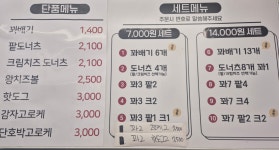 단품메뉴
꽈배기 1,400
팥도너츠 2,100
크림치즈 도너츠 2,100
왕치즈볼 2,500
핫도그 3,000
감자고로케 3,000
단호박고로케 3,000
세트메뉴
주문시 번호로 말씀해주세요
7,000원 세트
1 꽈배기 6개
2 도너츠 4개
3 꽈3 팥2
4 꽈3 크2
5 꽈3 팥1 크1
14,000원 세트
6 꽈배기 13개
7 도너츠8개 꽈1
8 꽈7 팥4
9 꽈7 크4
10 꽈7 팥2 크2